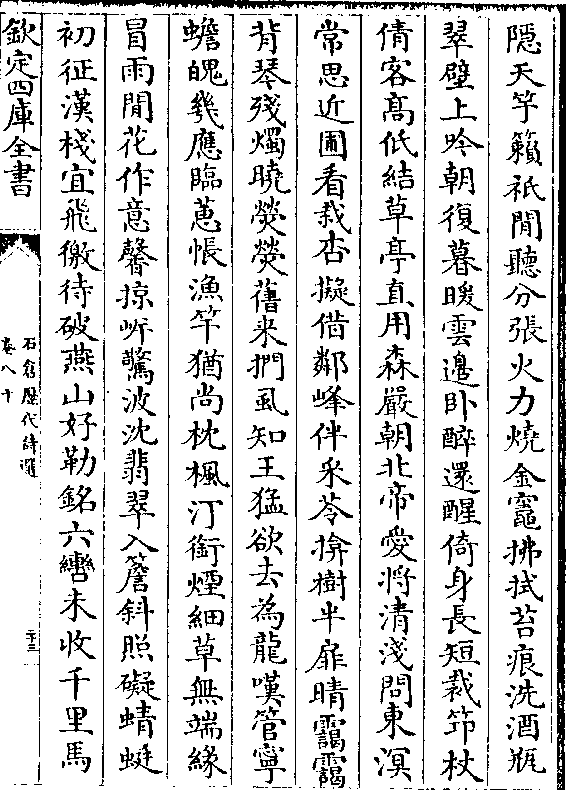 隱天竽籟祇閒聽分張火力燒金竈拂拭苔痕洗酒瓶
翠壁上吟朝復暮暖雲邊卧醉還醒倚身長短裁筇杖
倩客髙低結草亭直用森嚴朝北帝愛將清淺問東溟
常思近圃看栽杏擬借鄰峰伴采苓揜樹半扉晴靄靄
背琴殘燭曉熒熒舊來捫虱知王猛欲去為龍嘆管寧
蟾魄幾應臨蕙帳漁竿猶尚枕楓汀銜煙細草無端緑
冒雨閒花作意馨掠岸驚波沈翡翠入簷斜照礙蜻蜓
初征漢棧宜飛檄待破燕山好勒銘六轡未收千里馬
欽定四庫全書
石倉歷代詩選
卷八十
二十三